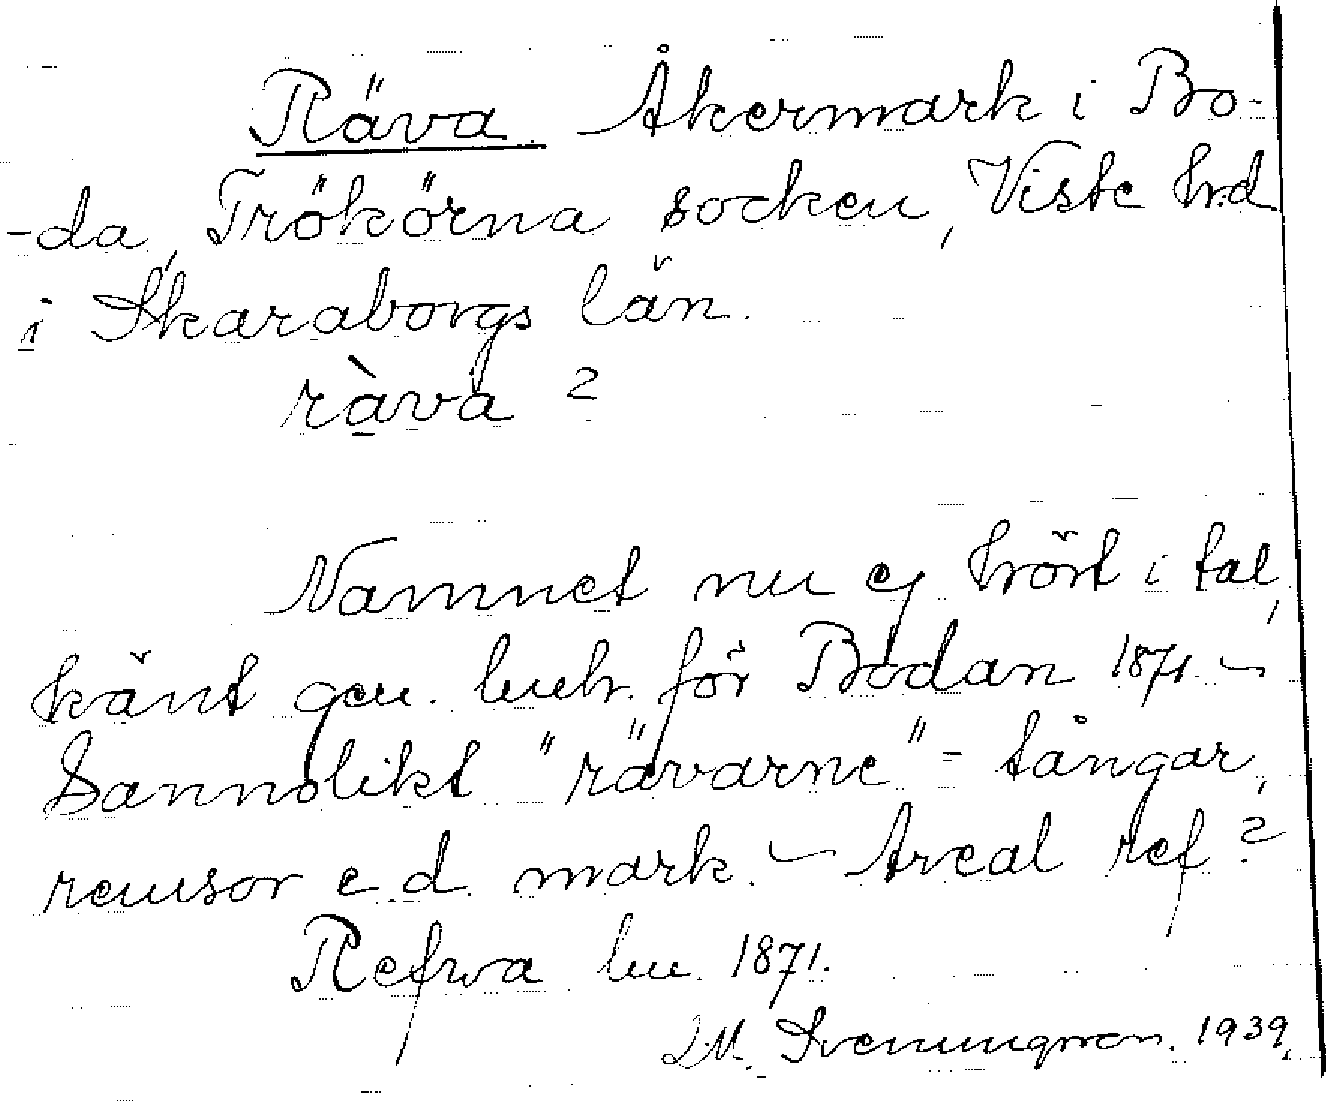 Räva. Åkermark i Bo-
-da, Trökörna socken, Viste hrd
i Skaraborgs län.
ràva ?
Namnet nu ej hört i tal,
känt gen. lmh. för Bodan 1871. –
Sannolikt "rävarne" = tångar,
remsor e. d. mark. – Areal ref?
Refwa lm. 1871.
Sveningsson. 1939.